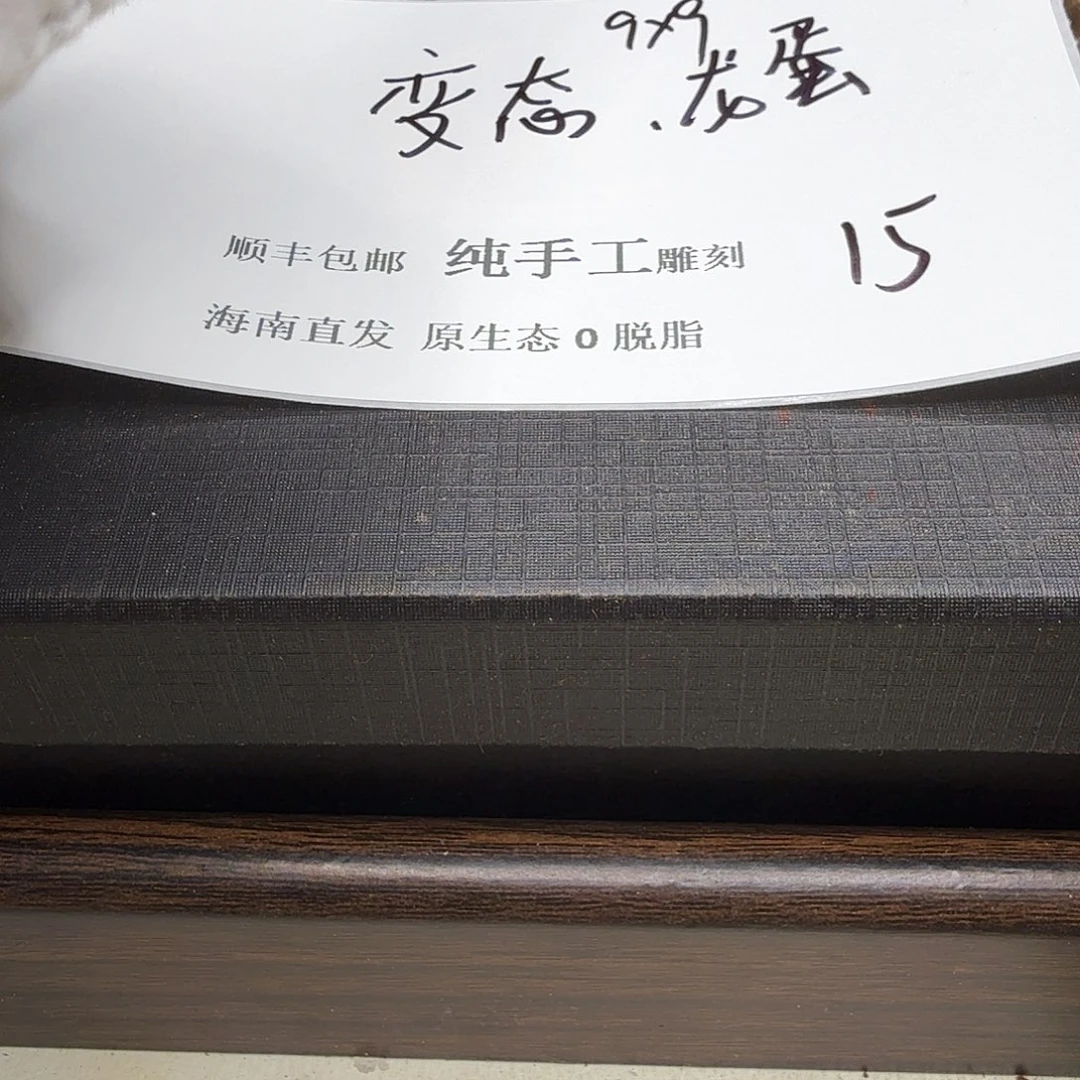 9x9
变态.龙蛋
15
顺丰包邮 纯手工雕刻
海南直发 原生态0脱脂